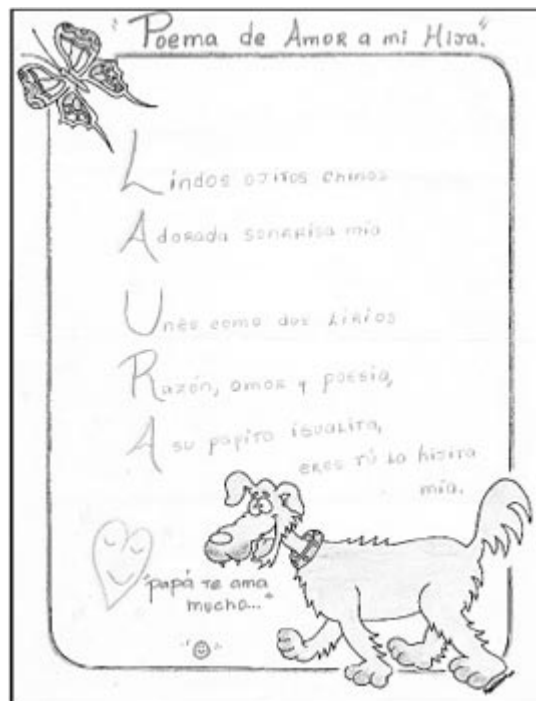 "Poema de Amor a mi Hija."
Lindos ojitos chinos
Adorada sonrisa mía
Unes como dos lirios
Razón, amor y poesía,
A su papito igualita,
eres tú la hijita
mía.
"papá te ama
mucho..."